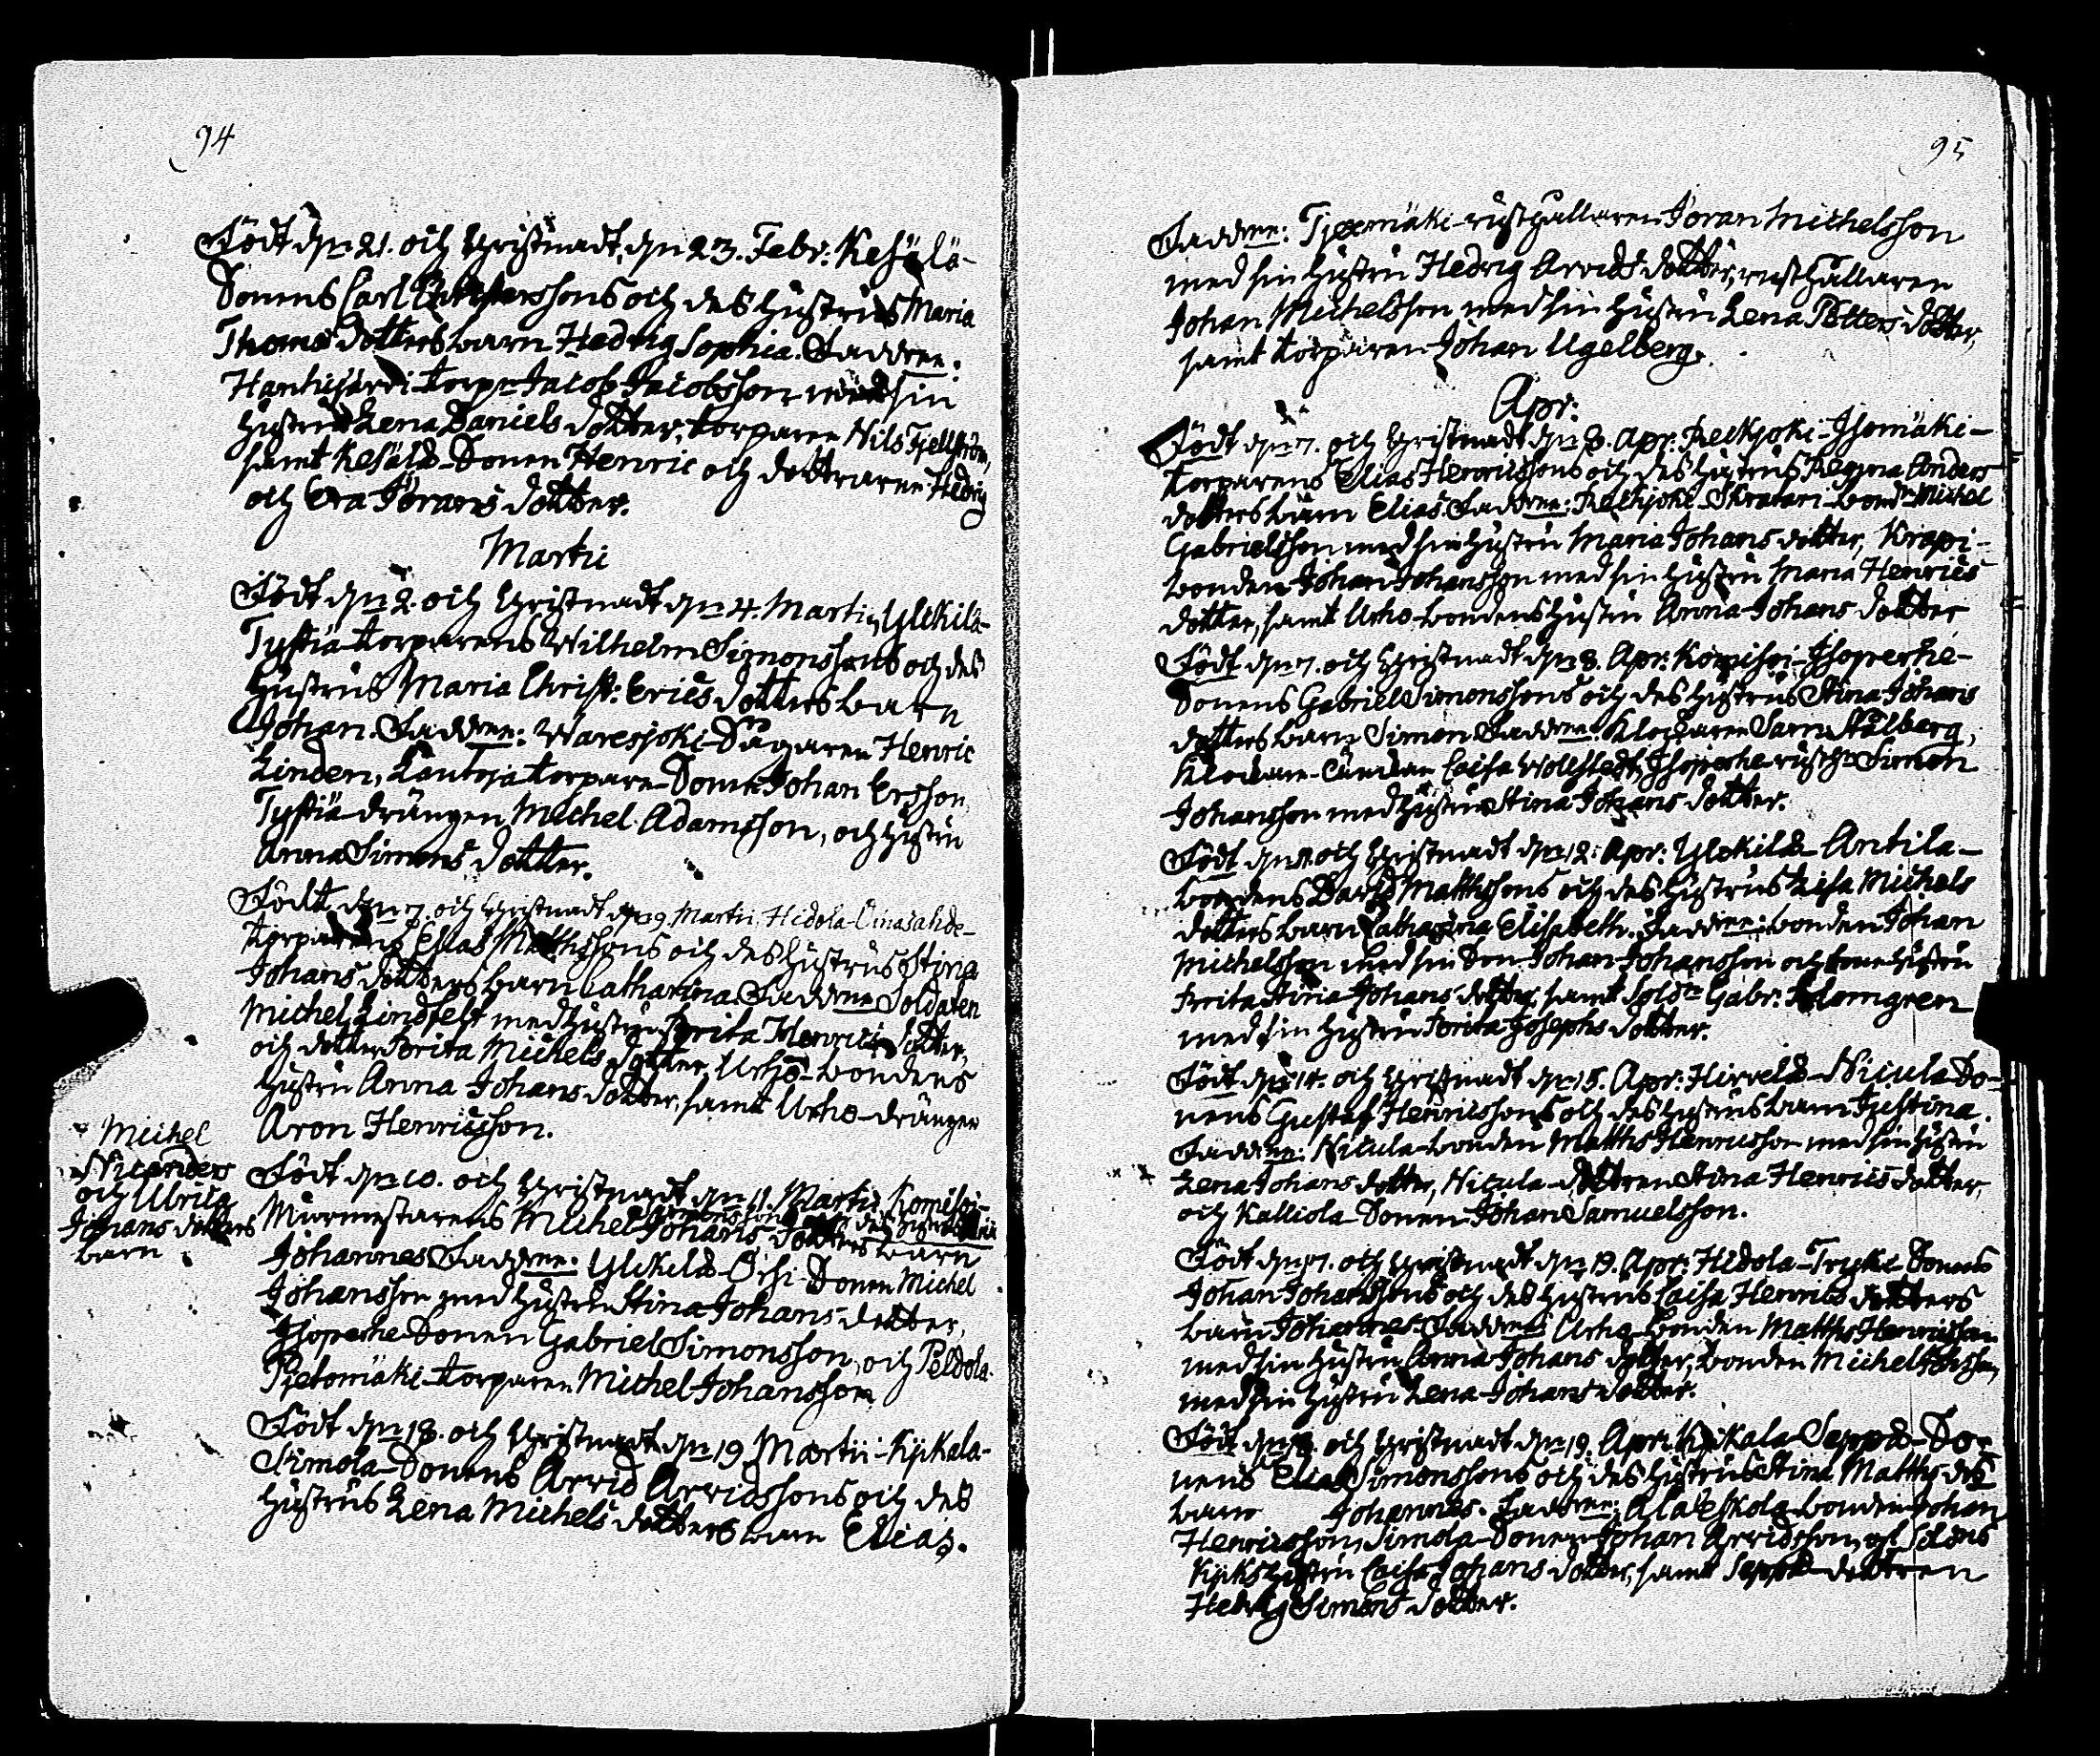 94
Födt den 21. och Christnadt den 23. Febr: Kesälä-
Sonens Carl Christerssons och des hustrus Maria
Thomæ dotters barn Hedvig Sophia. Faddrene:
Hanhijärvi torpn Jacob Jacobsson med sin
hustru Lena Daniels dotter, torparen Nils Fjellström,
samt Kesälä-Sonen Henric och dottrarne Hedvig
och Eva Jörans dotter.
Martii
Födt den 2. och Christnadt den 4. Martii, Ylikylä-
Tystiä-torparens Wilhelm Simonssons och des
hustrus Maria Christ: Erics dotters barn
Johan. Faddrene: Waresjoki-Sågaren Henric
Linden, Lautoja torpare-Sonen Johan Ersson,
Tystiä-drängen Michel Adamsson, och hustru
Anna Simons dotter.
Födt den 7. och Christnadt den 9. Martii. Hidola-
torparens Elias Matthssons och des hustrus Stina
Johans dotters barn Catharina. Faddrene Soldaten
Michel Lindfelt med hustru Brita Henrics dotter,
och dotter Brita Michels dotter, Urho-bondens
hustru Anna Johans dotter, samt Urho-drängen
Aron Henricsson.
Michel
Nicanders
och Ulrica
Johans dotters
barn
Födt den 10. och Christnadt den 11. Martii, Komsoi-
Murmestarens Michel Johans dotters barn
Johannes. Faddrene: Ylikylä-Orhi-Sonen Michel
Johansson med hustru Stina Johans dotter,
Isoperhe-Sonen Gabriel Simonsson, och Peldola-
Pietomäki-torparen Michel Johansson
Födt den 18. och Christnadt den 19 Martii. Kjikala-
Simola-Sonens Arvid Arvidssons och des
hustrus Lena Michels dotters barn Elias.
95
Faddrene: Tjermäki-rusthållaren Jöran Michelsson
med sin hustru Hedvig Arvids dotter, rusthållaren
Johan Michelsson med sin hustru Lena Petters dotter,
samt torparen Johan Ugelberg.
Apr:
Födt den 7. och Christnadt den 8. Apr: Reckjoki-Isomäki-
torparens Elias Henricssons och des hustrus Regina Anders
dotters barn Elias. Faddrene: Reckjoki-Skratari-bondn Michel
Gabrielsson med sin hustru Maria Johans dotter, Krapi-
bonden Johan Johansson med sin hustru Maria Henrics
dotter, samt Urho-bondens hustru Anna Johans dotter
Födt den 7. och Christnadt den 8. Apr: Komisoi-Isoperhe-
Sonens Gabriel Simonssons och des hustrus Stina Johans
dotters barn Simon. Faddrene: Klockaren Sam Stålberg,
Klockare-Caisa Wollstedt, Isoperhe-rusth: Simon
Johansson med hustru Stina Johans dotter.
Födt den 11. och Christnadt den 12: Apr: Ylikylä-Antila-
bondens David Matthssons och des hustrus Lisa Michels
dotters barn Catharina Elisabeth. Faddrene: bonden Johan
Michelsson med sin Son Johan Johansson och hustru
Brita Stina Johans dotter, samt Soldn Gabr: Holmgren
med sin hustru Brita Josephs dotter.
Födt den 14. och Christnadt den 15. Apr: Hirvelä-Nicula So-
nens Gustaf Henricssons och des hustrus barn Justina.
Faddrene: Nicula-bonden Matths Henricsson med sin hustru
Lena Johans dotter, Nicula-dottren Stina Henrics dotter,
och Kalliola-Sonen Johan Samuelsson.
Födt den 17. och Christnadt den 19. Apr: Hidola-Tryki Sonens
Johan Johanssons och des hustrus Caisa Henrics dotters
barn Johannes. Faddrene Urho-bonden Matths Henricsson
med sin hustru Anna Johans dotter, bonden Michel Johsson,
med sin hustru Lena Johans dotter.
Födt den 18. och Christnadt den 19. Apr: Kjikala-Seppä-So-
nens Elias Simonssons och des hustrus Stina Matths dors
barn Johannes. Faddrene: Alaeskola-bonden Johan
Henricsson, Simola-Sonen Johan Arvidsson,
Kjiks hustru Caisa Johans dotter, samt Seppä-dottren
Hedvig Simons dotter.